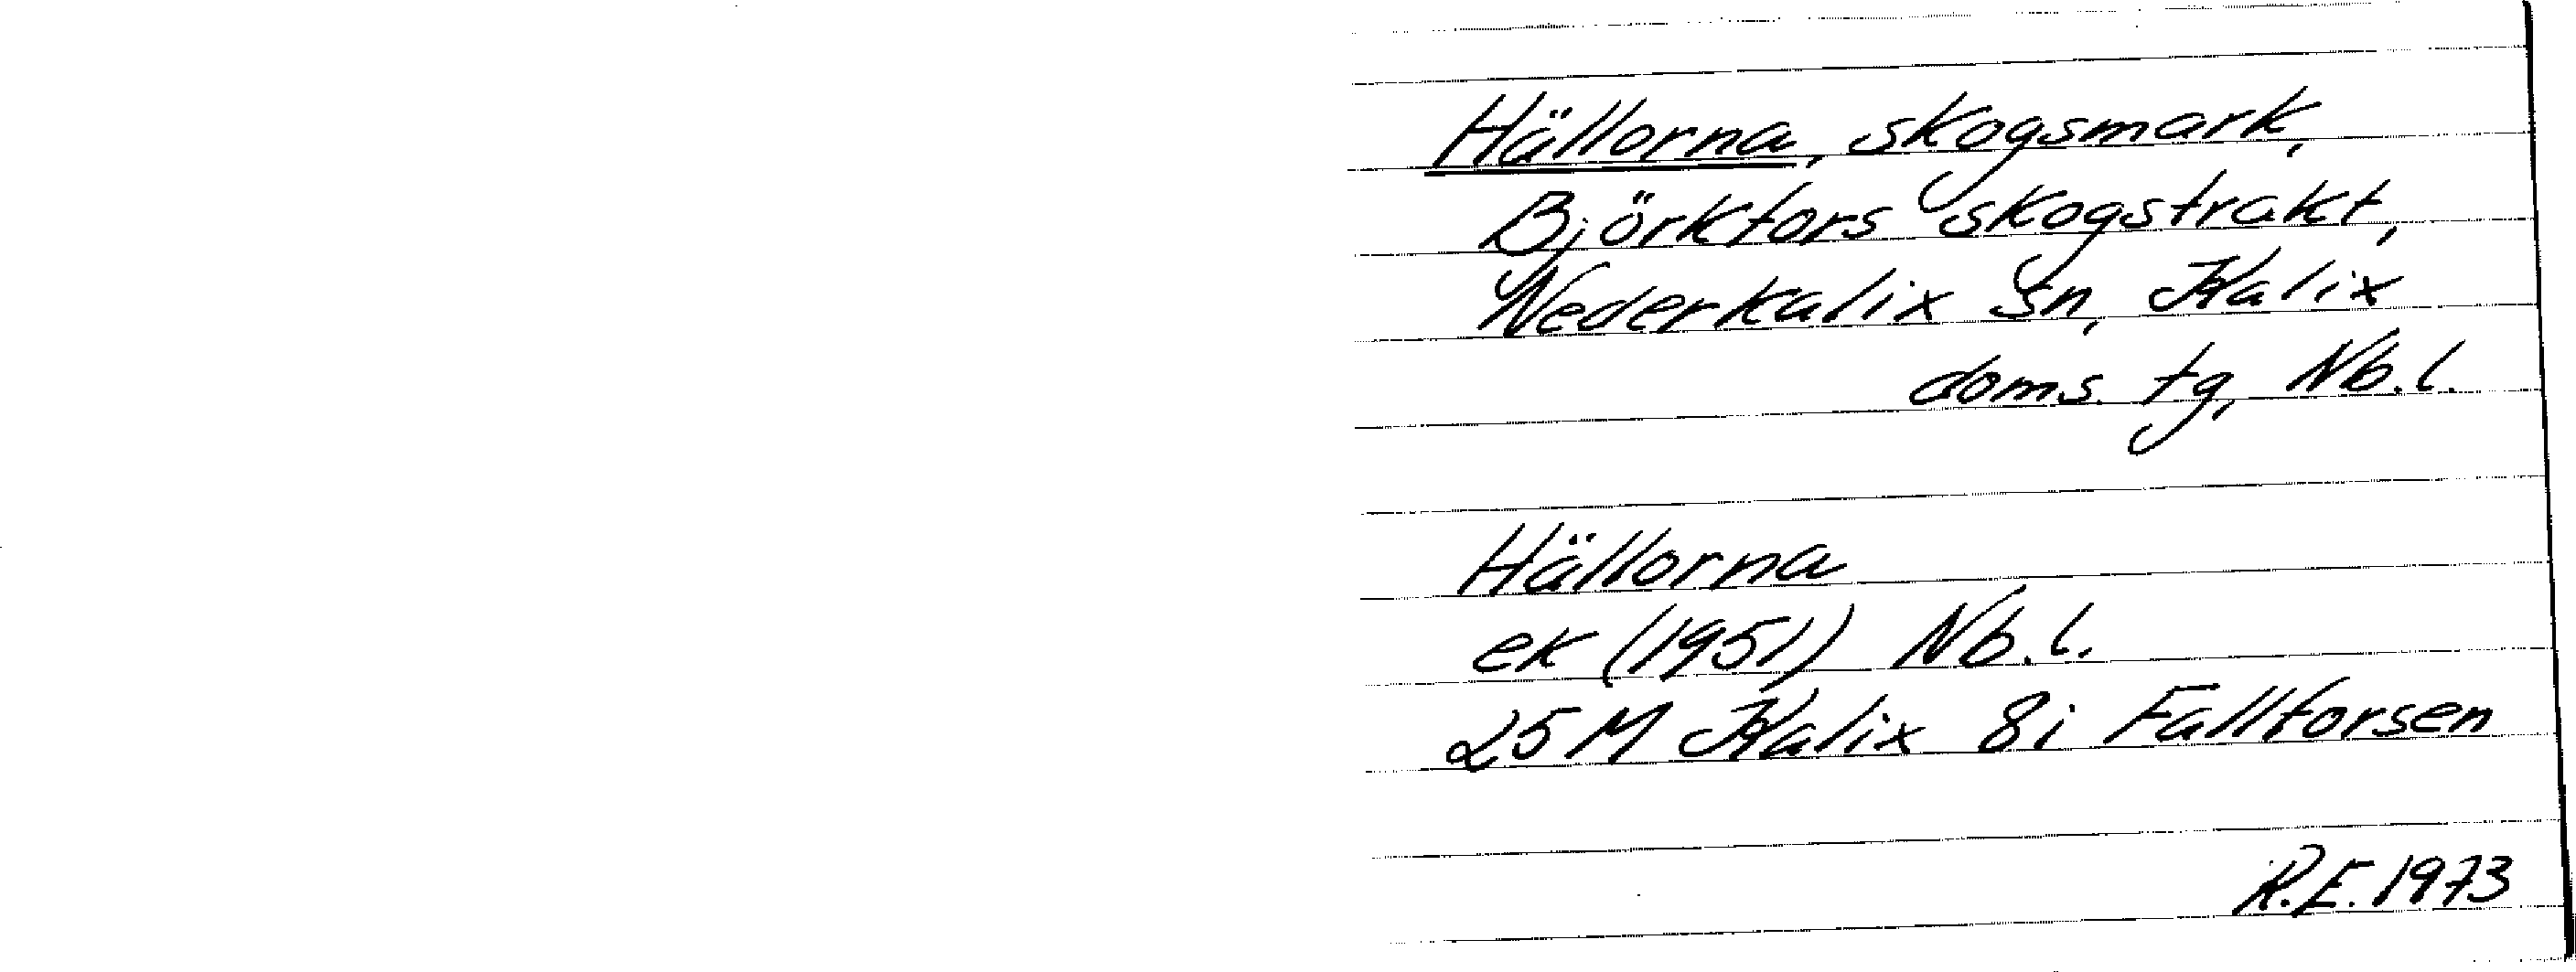 Hällorna, skogsmark,
Björkfors skogstrakt,
Nederkalix sn, Kalix
doms. tg, Nb.l.
Hällorna
ek (1951) Nb.l.
25 M Kalix 8i Fallforsen
R.E. 1973